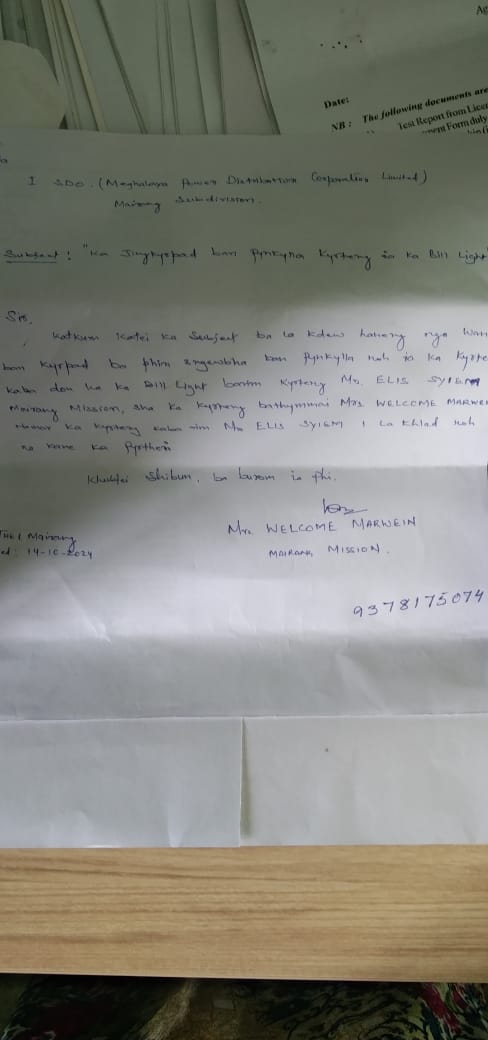 Date:
NB : The following documents are
Test Report from
Form duly
I SDO. (Meghalaya Power Distribution Corporation Limited)
Mairang Subdivision.
Subject : "Ka Jingkyrpad ban Pynkylla Kyrteng ia ka Bill Light"
Sir,
Katkum katei ka Subject ba la kdew haneng nga wan
ban kyrpad ba phin ban Pynkylla noh ia ka
kaba don ha ka Bill Light Kyrteng Ms. ELIS SYIEM
Mairang Mission, sha ka Kyrteng bathymmai Mrs WELCOME
ka Kyrteng kaba rim Ms ELIS SYIEM I La Khlad noh
na kane ka Pyrthei
Khublei Shibun, ba burom ia phi.
Mrs. WELCOME MARWEIN
MAIRANG MISSION.
Mairang
14-10-2024
9378175074